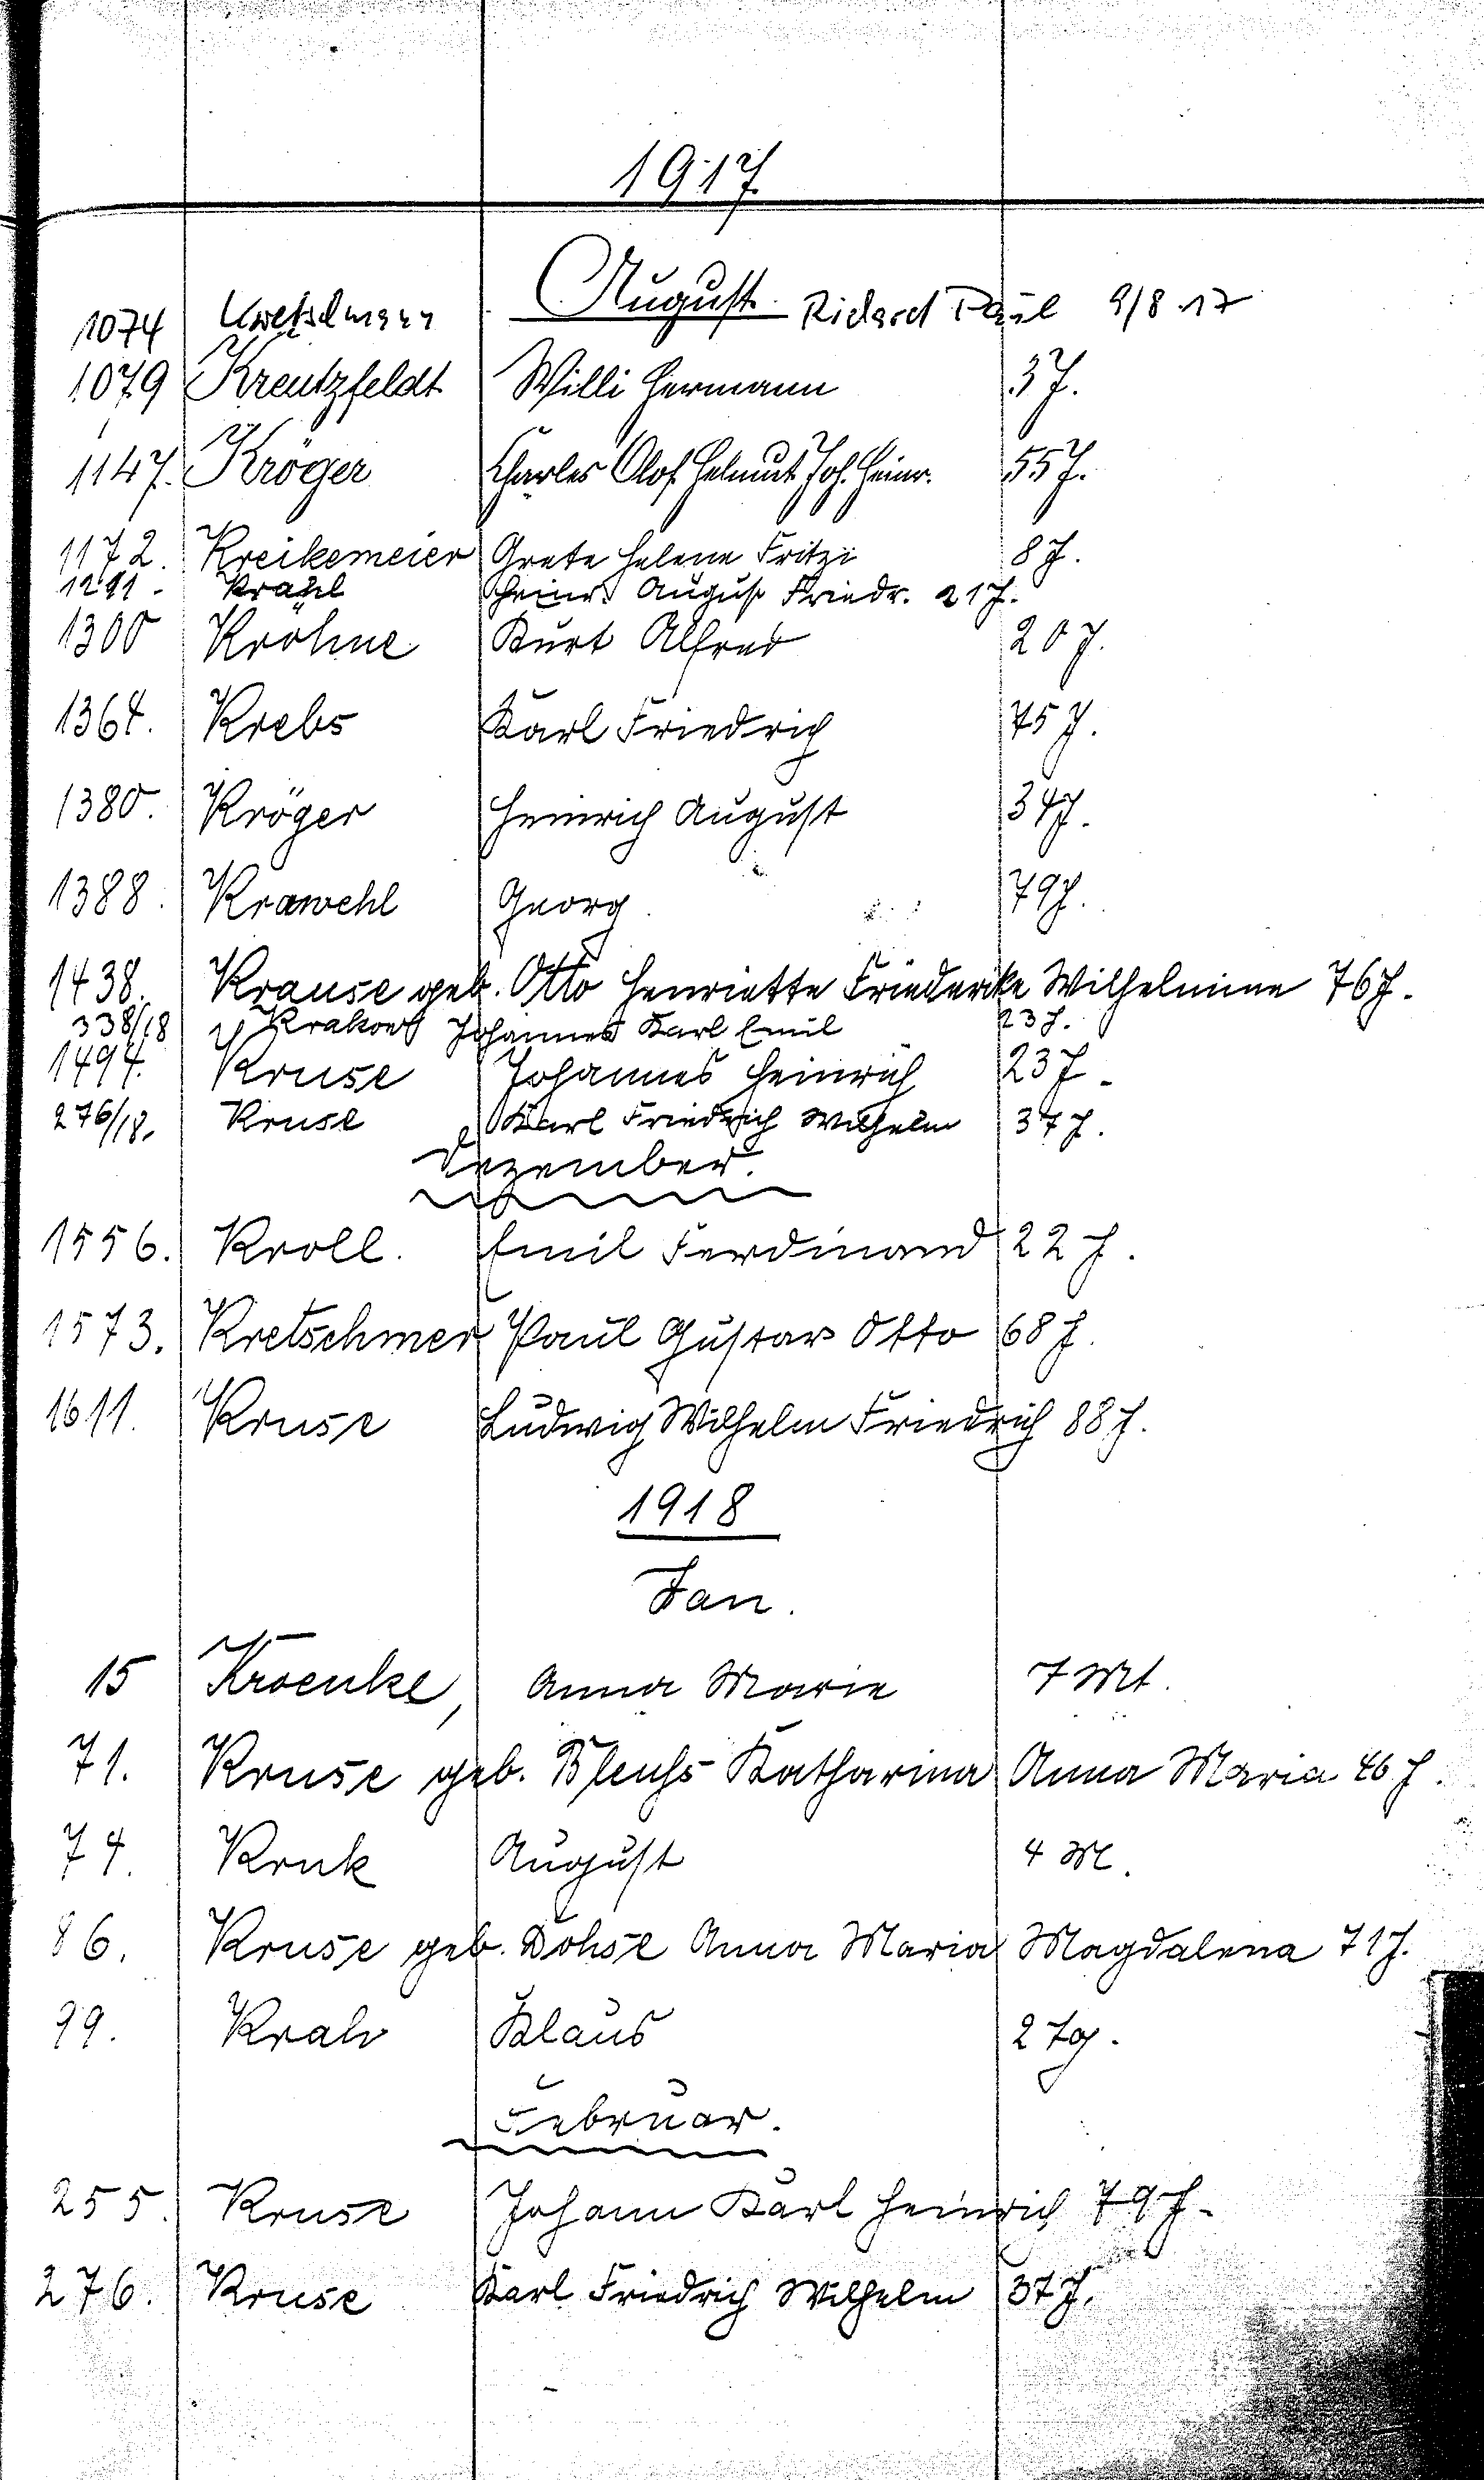 1917.
August.
1074 Kretschmann Richard Paul 9/8 17
1079 Kreutzfeldt Willi Hermann 3 J.
1147. Kröger Charles Olof Helmut Joh. Heinr. 55 J.
1172. Kreikemeier Grete Helene Fritzi 8 J.
1291. Krahl Heinr. August Friedr. 21 J.
1300 Kröhne Kurt Alfred 20 J.
1364. Krebs Karl Friedrich 75 J.
1380. Kröger Heinrich August 34 J.
1388. Krawehl Georg 79 J.
1438. Krause geb. Otto Henriette Friederike Wilhelmine 76 J.
338/18 Johannes Karl Emil 23 J.
1494. Kruse Johannes Heinrich 23 J.
276/18. Kruse Karl Friedrich Wilhelm 37 J.
Dezember.
1556. Kroll. Emil Ferdinand 22 J.
1573. Kretschmer Paul Gustav Otto 68 J.
1611. Kruse Ludwig Wilhelm Friedrich 88 J.
1918
Jan.
15 Kroenke, Anna Marie 7 Mt.
71. Kruse geb. Katharina Anna Maria 46 J.
74. Kruk August 4 M.
86. Kruse geb. Dohse Anna Maria Magdalena 71 J.
99. Krah Klaus 2 Tg.
Februar.
255. Kruse Johann Karl Heinrich 79 J.
276. Kruse Karl Friedrich Wilhelm 37 J.